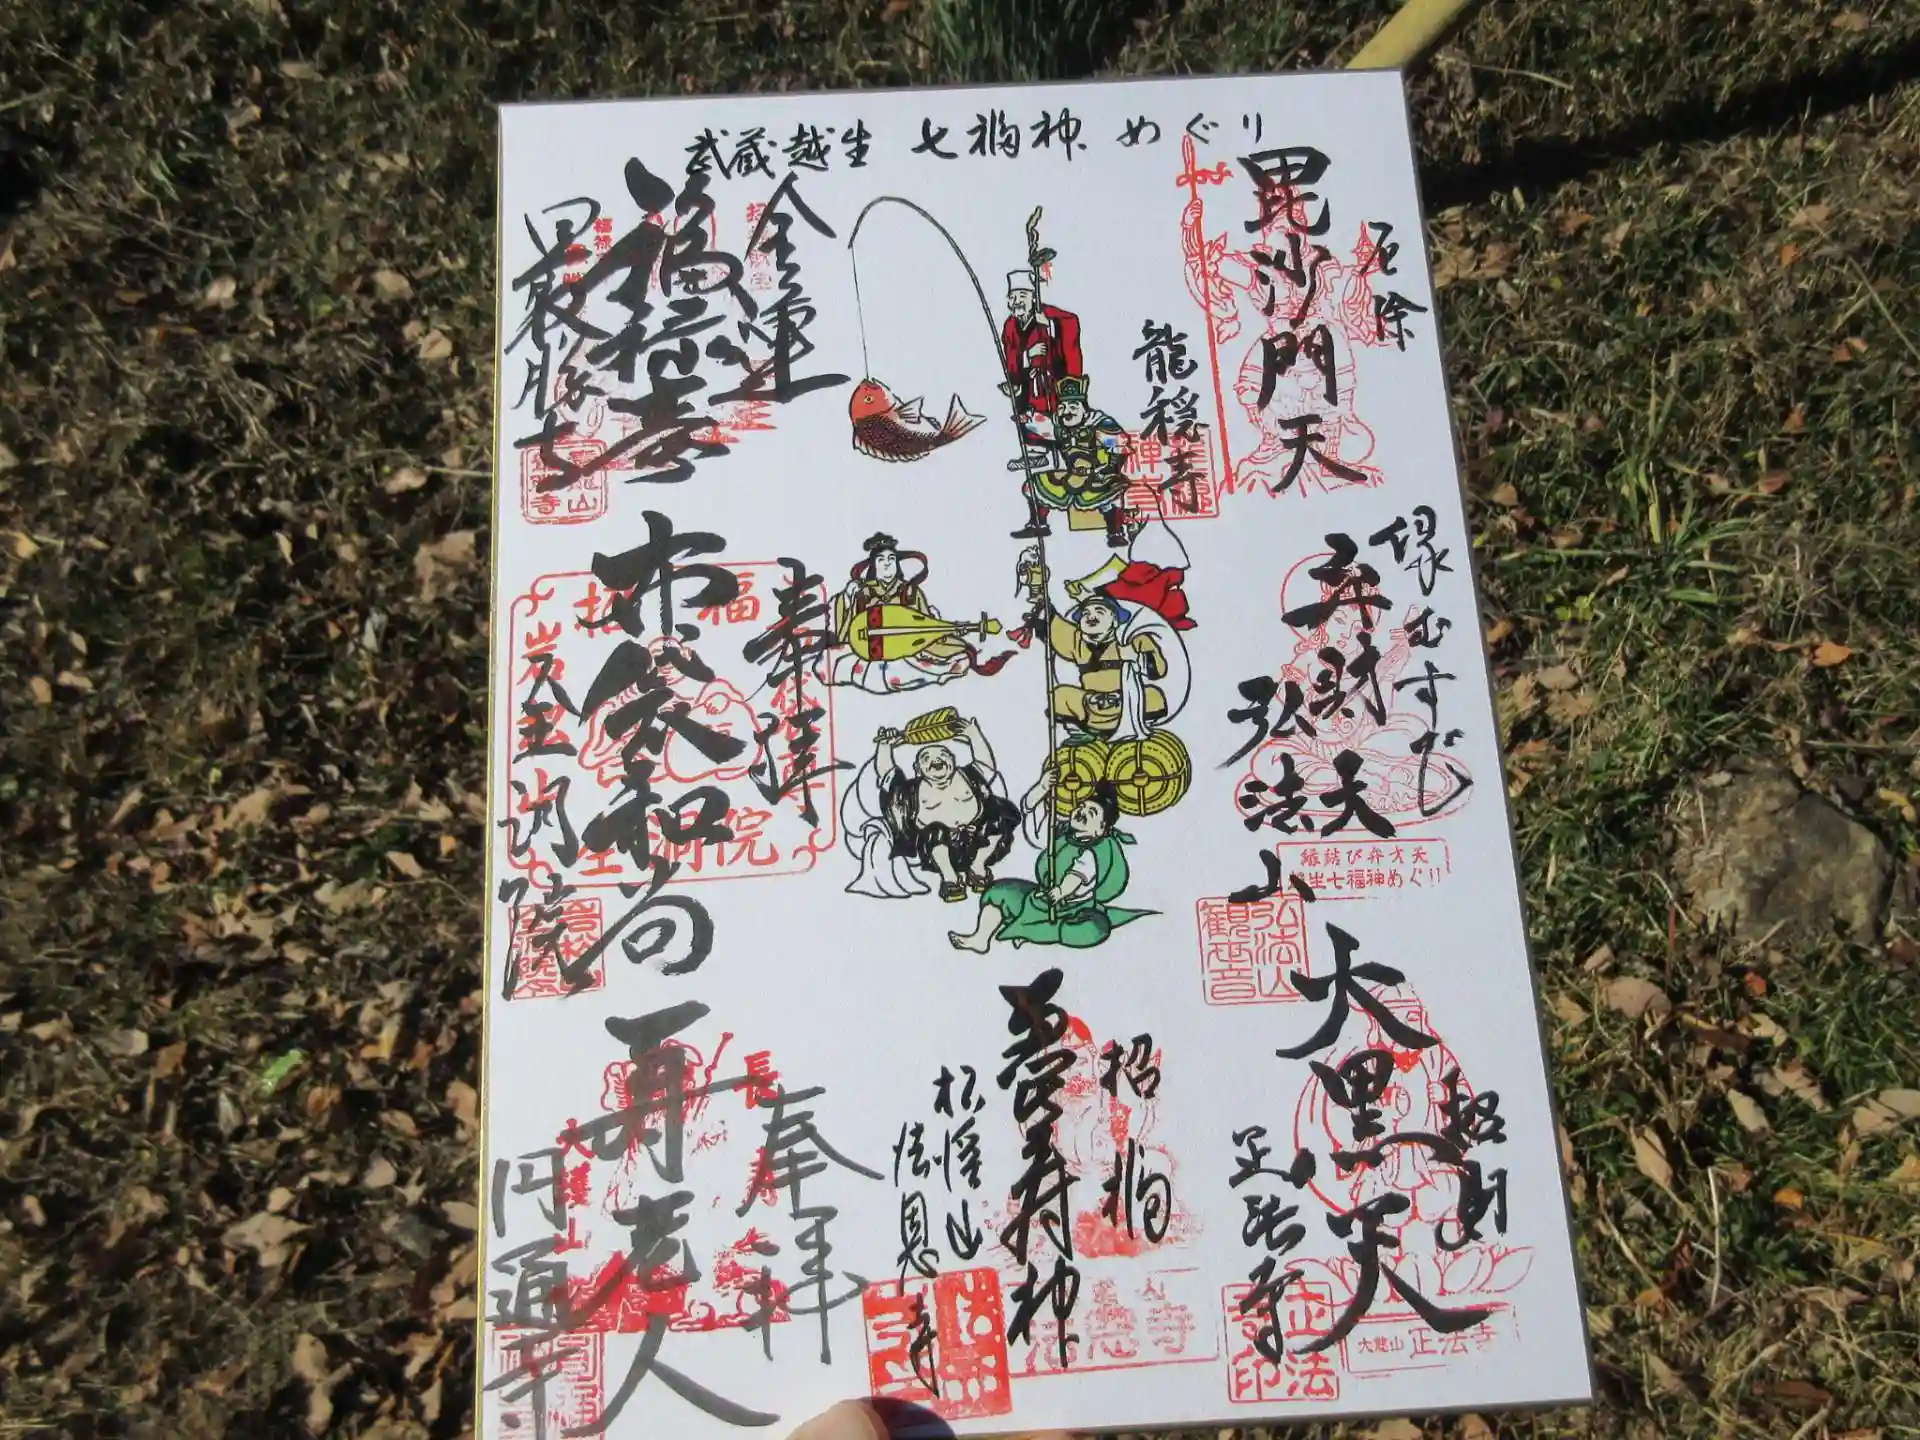 武蔵越生 七福神 めぐり
毘沙門天
厄除
龍穏寺
金運
福禄寿
最勝寺
縁むすび
弁財天
弘法山
縁結び弁才天
越生七福神めぐり
弘法山
観世音
奉拝
布袋和尚
全洞院
招福
全洞院
大黒天
招財
正法寺
大龍山 正法寺
正法寺印
招福
恵比寿神
松渓山
法恩寺
法恩寺
奉拝
寿老人
円通寺
長寿